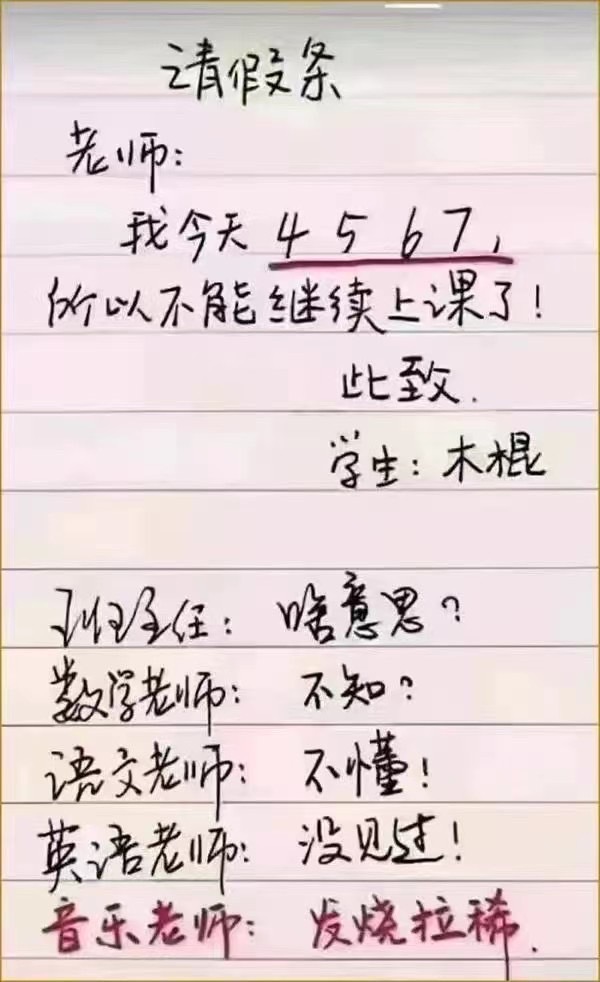 请假条
老师:
我今天 4 5 6 7,
所以不能继续上课了!
此致.
学生: 木棍
班主任: 啥意思?
数学老师: 不知?
语文老师: 不懂!
英语老师: 没见过!
音乐老师: 发烧拉稀.